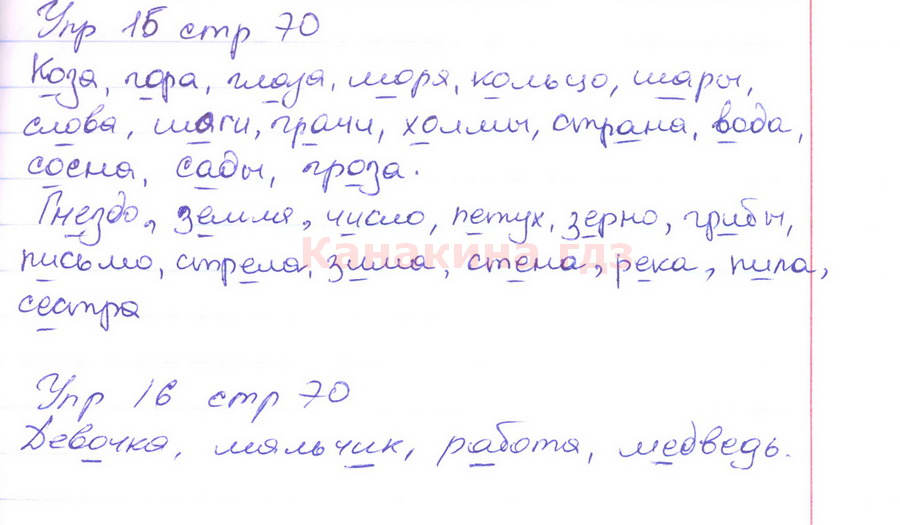 Упр 15 стр 70
Коза, гора, глаза, моря, кольцо, шары,
слова, шаги, грачи, холмы, страна, вода,
сосна, сады, гроза.
Гнездо, земля, число, петух, зерно, грибы,
Канакина гдз
письмо, стрела, зима, стена, река, пила,
сестра
Упр 16 стр 70
Девочка, мальчик, работа, медведь.